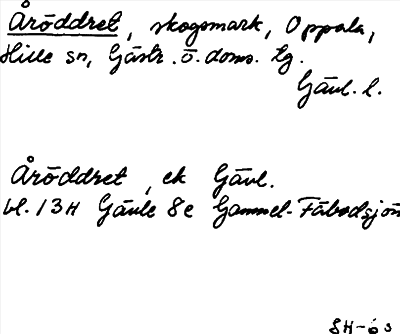 Åröddret, skogsmark, Oppala,
Hille sn, Gästr. ö. doms. tg.
Gävl. l.
Åröddret, ek Gävl.
bl. 13H Gävle 8e Gammel-Fäbodsjön